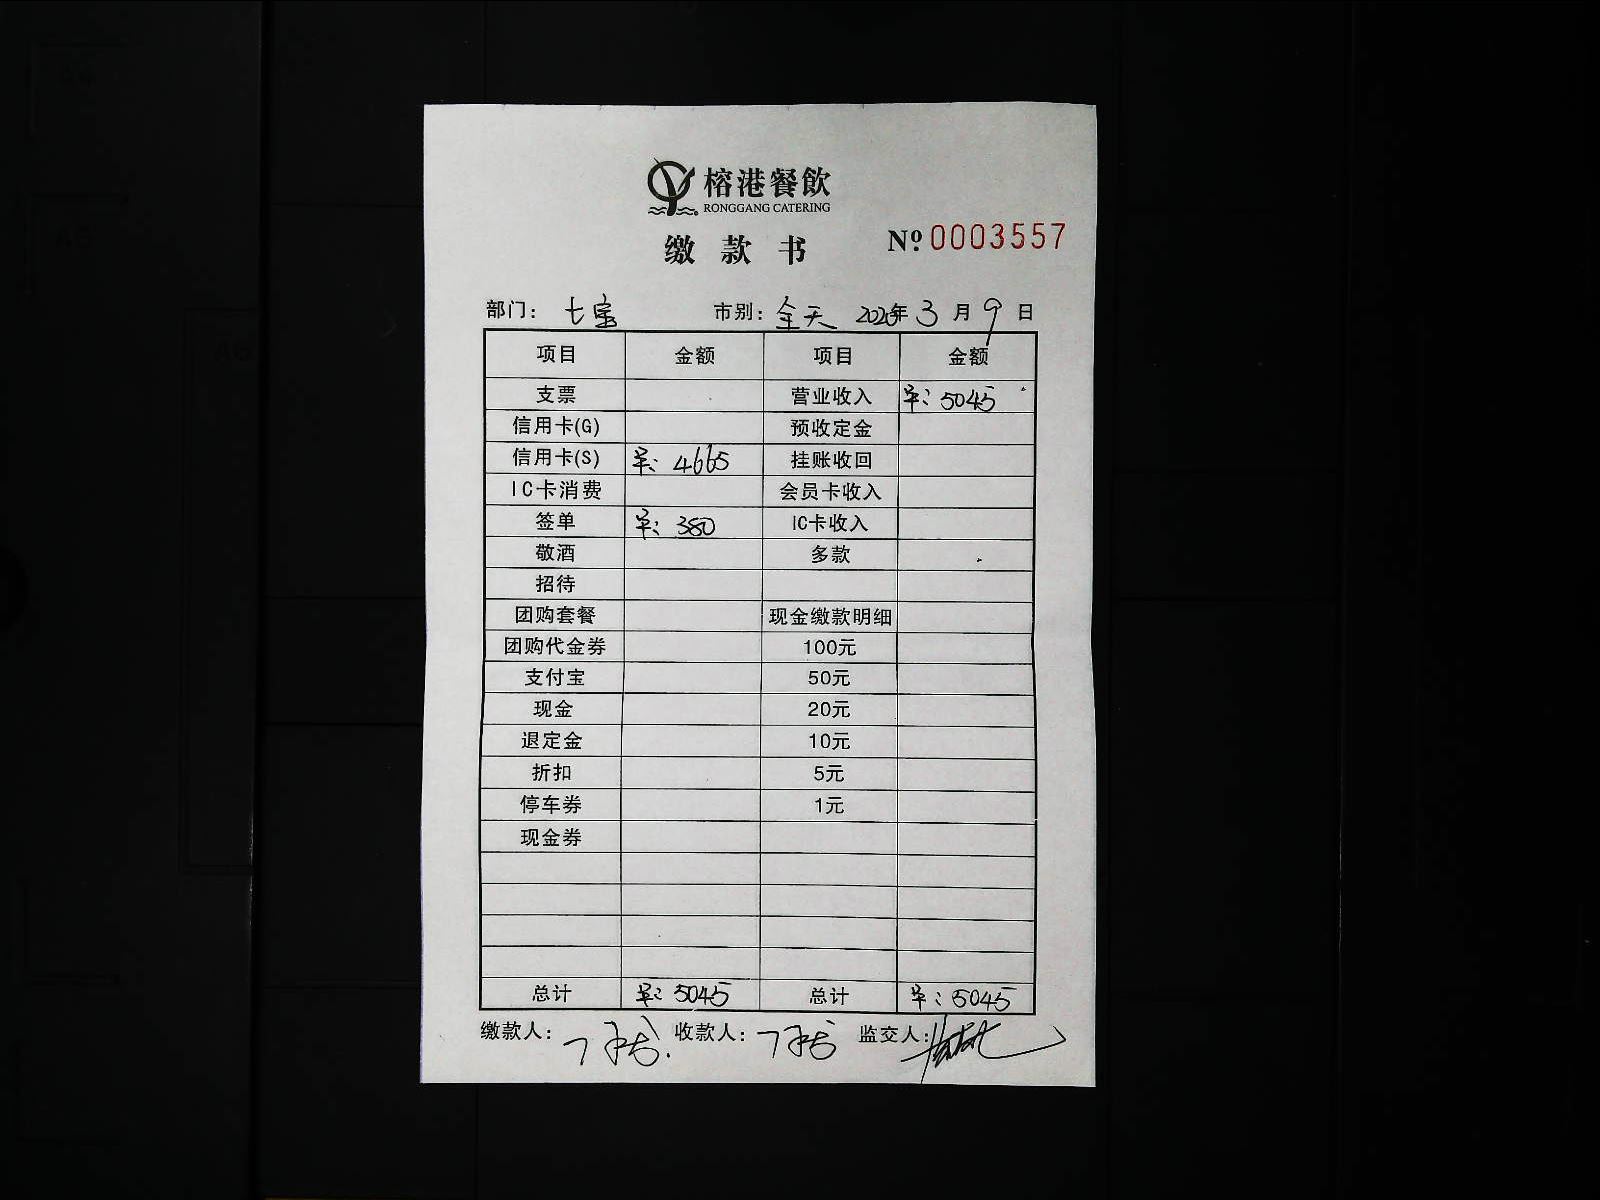 榕港餐飲
RONGGANG CATERING
缴款书 Nº 0003557
部门: 七宝 市别: 全天 2020年3月9日
项目 金额 项目 金额
支票 营业收入 ¥: 5045
信用卡(G) 预收定金
信用卡(S) ¥: 4665 挂账收回
IC卡消费 会员卡收入
签单 ¥: 380 IC卡收入
敬酒 多款
招待
团购套餐 现金缴款明细
团购代金券 100元
支付宝 50元
现金 20元
退定金 10元
折扣 5元
停车券 1元
现金券
总计 ¥: 5045 总计 ¥: 5045
缴款人: 收款人: 监交人: